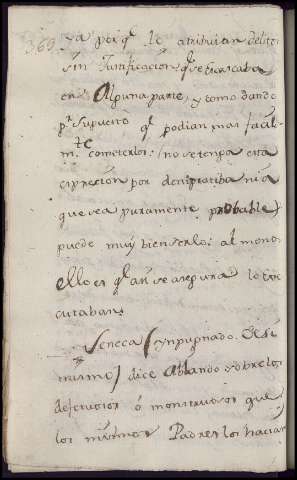 369.
ya porq.e le atribuian delito
sin Justificacion q.e se buscaba
en Alguna parte, y tomo dando
p.r Supuesto q.e podian mas facil
m.te cometerlos: (no se tenga esta
expresión por denigratiba ni a
que sea puramente probable)
puede muy bien serlo: al meno
ello es q.e asi se asegura lo exe
cutaban.
Seneca (ynpugnado
mismo) dice Ablando sobre los
defectuosos ó monstruosos que
los mismos Padres los hacian